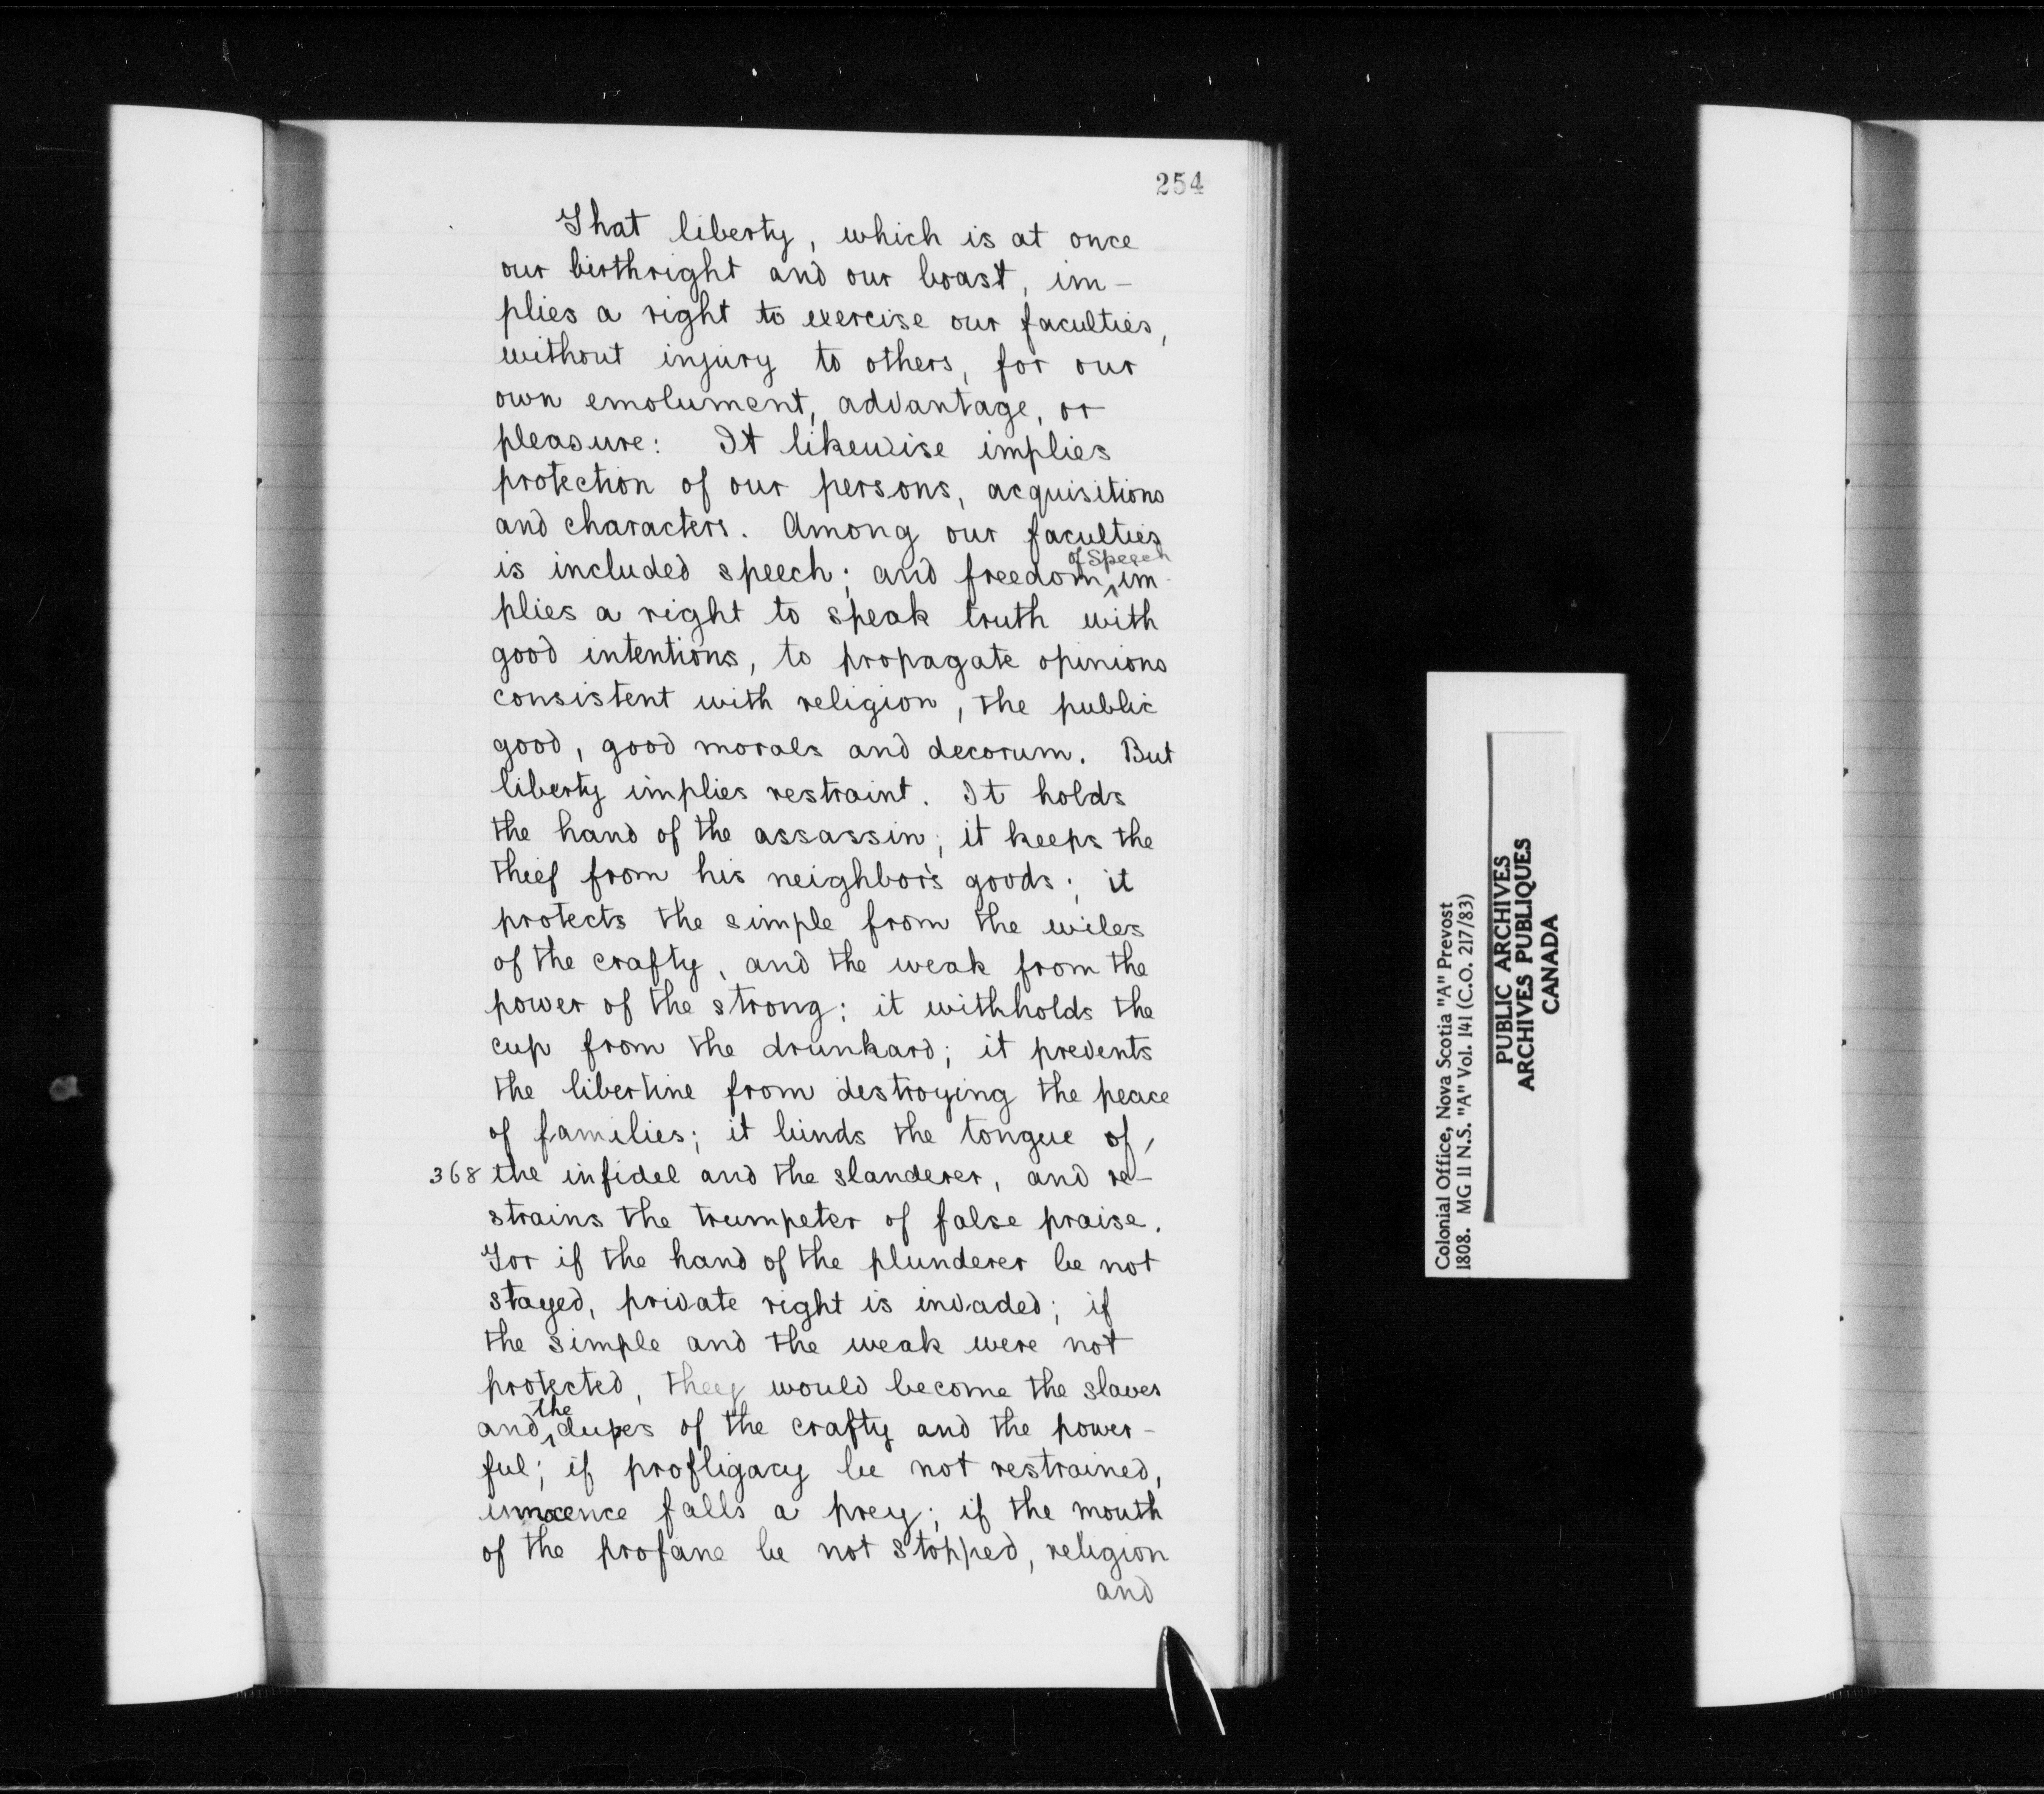 254
That liberty, which is at once
our birthright and our boast, im-
plies a right to exercise our faculties,
without injury to others, for our
own emolument, advantage, or
pleasure: It likewise implies
protection of our persons, acquisitions
and characters. Among our faculties
is included speech; and freedom of Speech im-
plies a right to speak truth with
good intentions, to propagate opinions
consistent with religion, the public
good, good morals and decorum. But
liberty implies restraint. It holds
the hand of the assassin; it keeps the
thief from his neighbor's goods; it
protects the simple from the wiles
of the crafty, and the weak from the
power of the strong; it withholds the
cup from the drunkard; it prevents
the libertine from destroying the peace
of families; it binds the tongue of /
368 the infidel and the slanderer, and re-
strains the trumpeter of false praise.
For if the hand of the plunderer be not
stayed, private right is invaded; if
the simple and the weak were not
protected, they would become the slaves
and the dupes of the crafty and the power-
ful; if profligacy be not restrained,
innocence falls a prey; if the mouth
of the profane be not stopped, religion
and
Colonial Office, Nova Scotia "A" Prevost
1808. MG 11 N.S. "A" Vol. 141 (C.O. 217/83)
PUBLIC ARCHIVES
ARCHIVES PUBLIQUES
CANADA